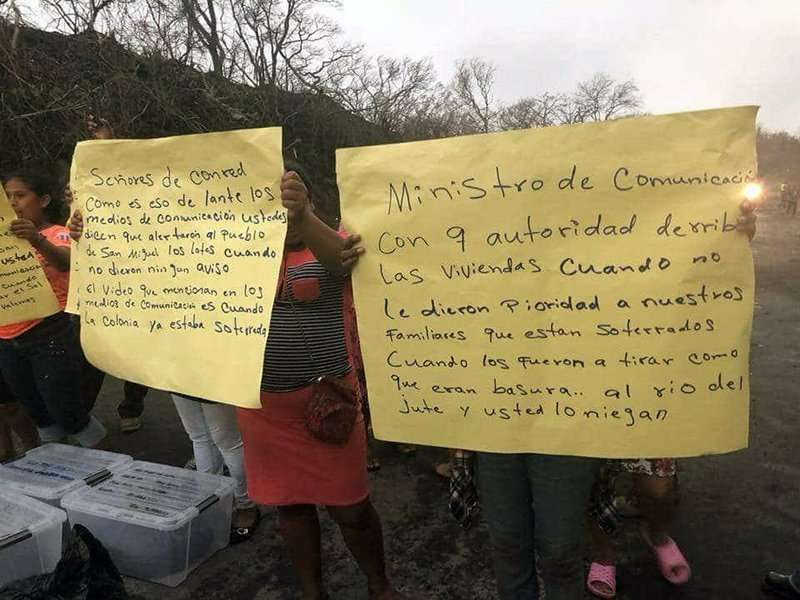 usted
cuando
ar el Sal
Señores de conred
Como es eso de lante los
medios de comunicación ustedes
dicen que alertarón al Pueblo
de San Miguel los lotes cuando
no dieron ningun aviso
el video que mencionan en los
medios de comunicación es cuando
La colonia ya estaba soterrada
Ministro de Comunicació
Con q autoridad derrib
Las viviendas Cuando no
Le dieron Pioridad a nuestros
Familiares que estan Soterrados
Cuando los fueron a tirar como
que eran basura.. al rio del
jute y usted lo niegan